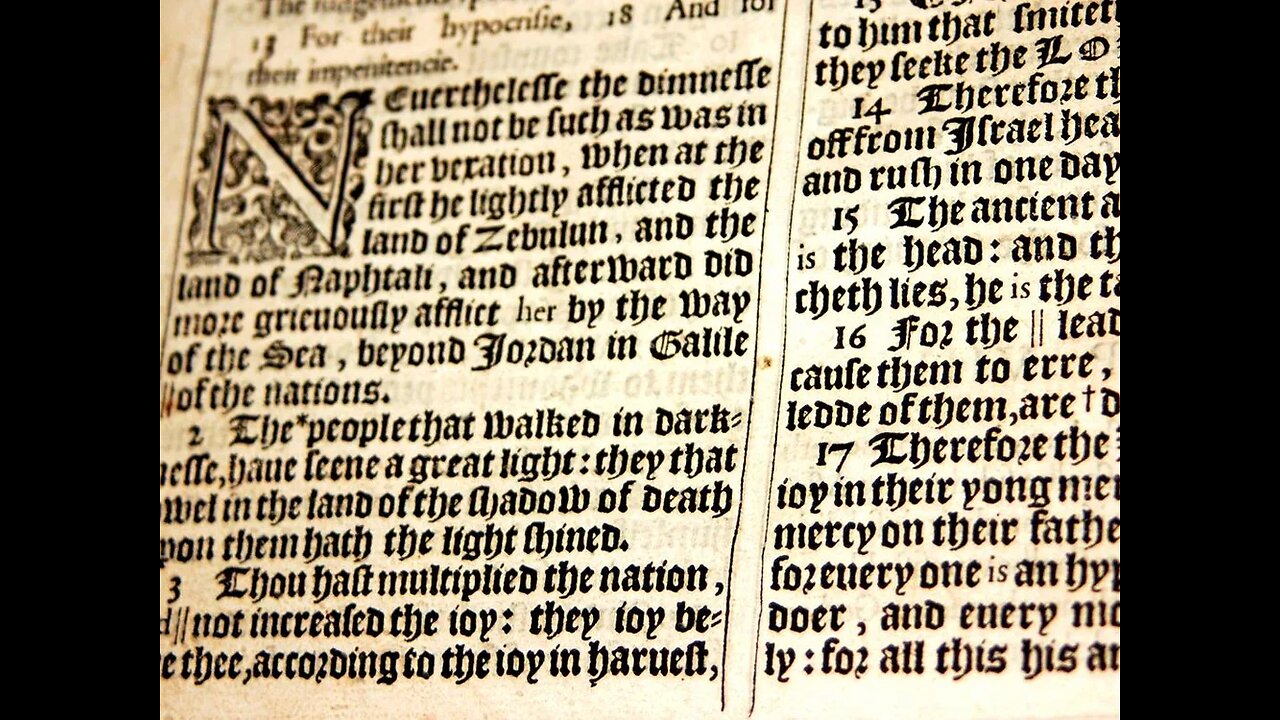 13 For their hypocrisie, 18 And for
their impenitencie.
NEuerthelesse the dimnesse
shall not be such as was in
her vexation, when at the
first he lightly afflicted the
land of Zebulun, and the
land of Naphtali, and afterward did
more grieuously afflict her by the way
of the Sea, beyond Jordan in Galile
||of the nations.
2 The*people that walked in dark-
nesse, haue seene a great light: they that
wel in the land of the shadow of death
pon them hath the light shined.
3 Thou hast multiplied the nation,
d||not increased the ioy: they ioy be-
e thee, according to the ioy in haruest,
to him that smitet
they seeke the LO
14 Therefore th
off from Israel hea
and rush in one day
15 The ancient a
is the head: and th
cheth lies, he is the ta
16 For the || lead
cause them to erre,
ledde of them, are †d
17 Therefore the
ioy in their yong me
mercy on their fathe
for euery one is an hyp
doer, and euery mo
ly: for all this his an